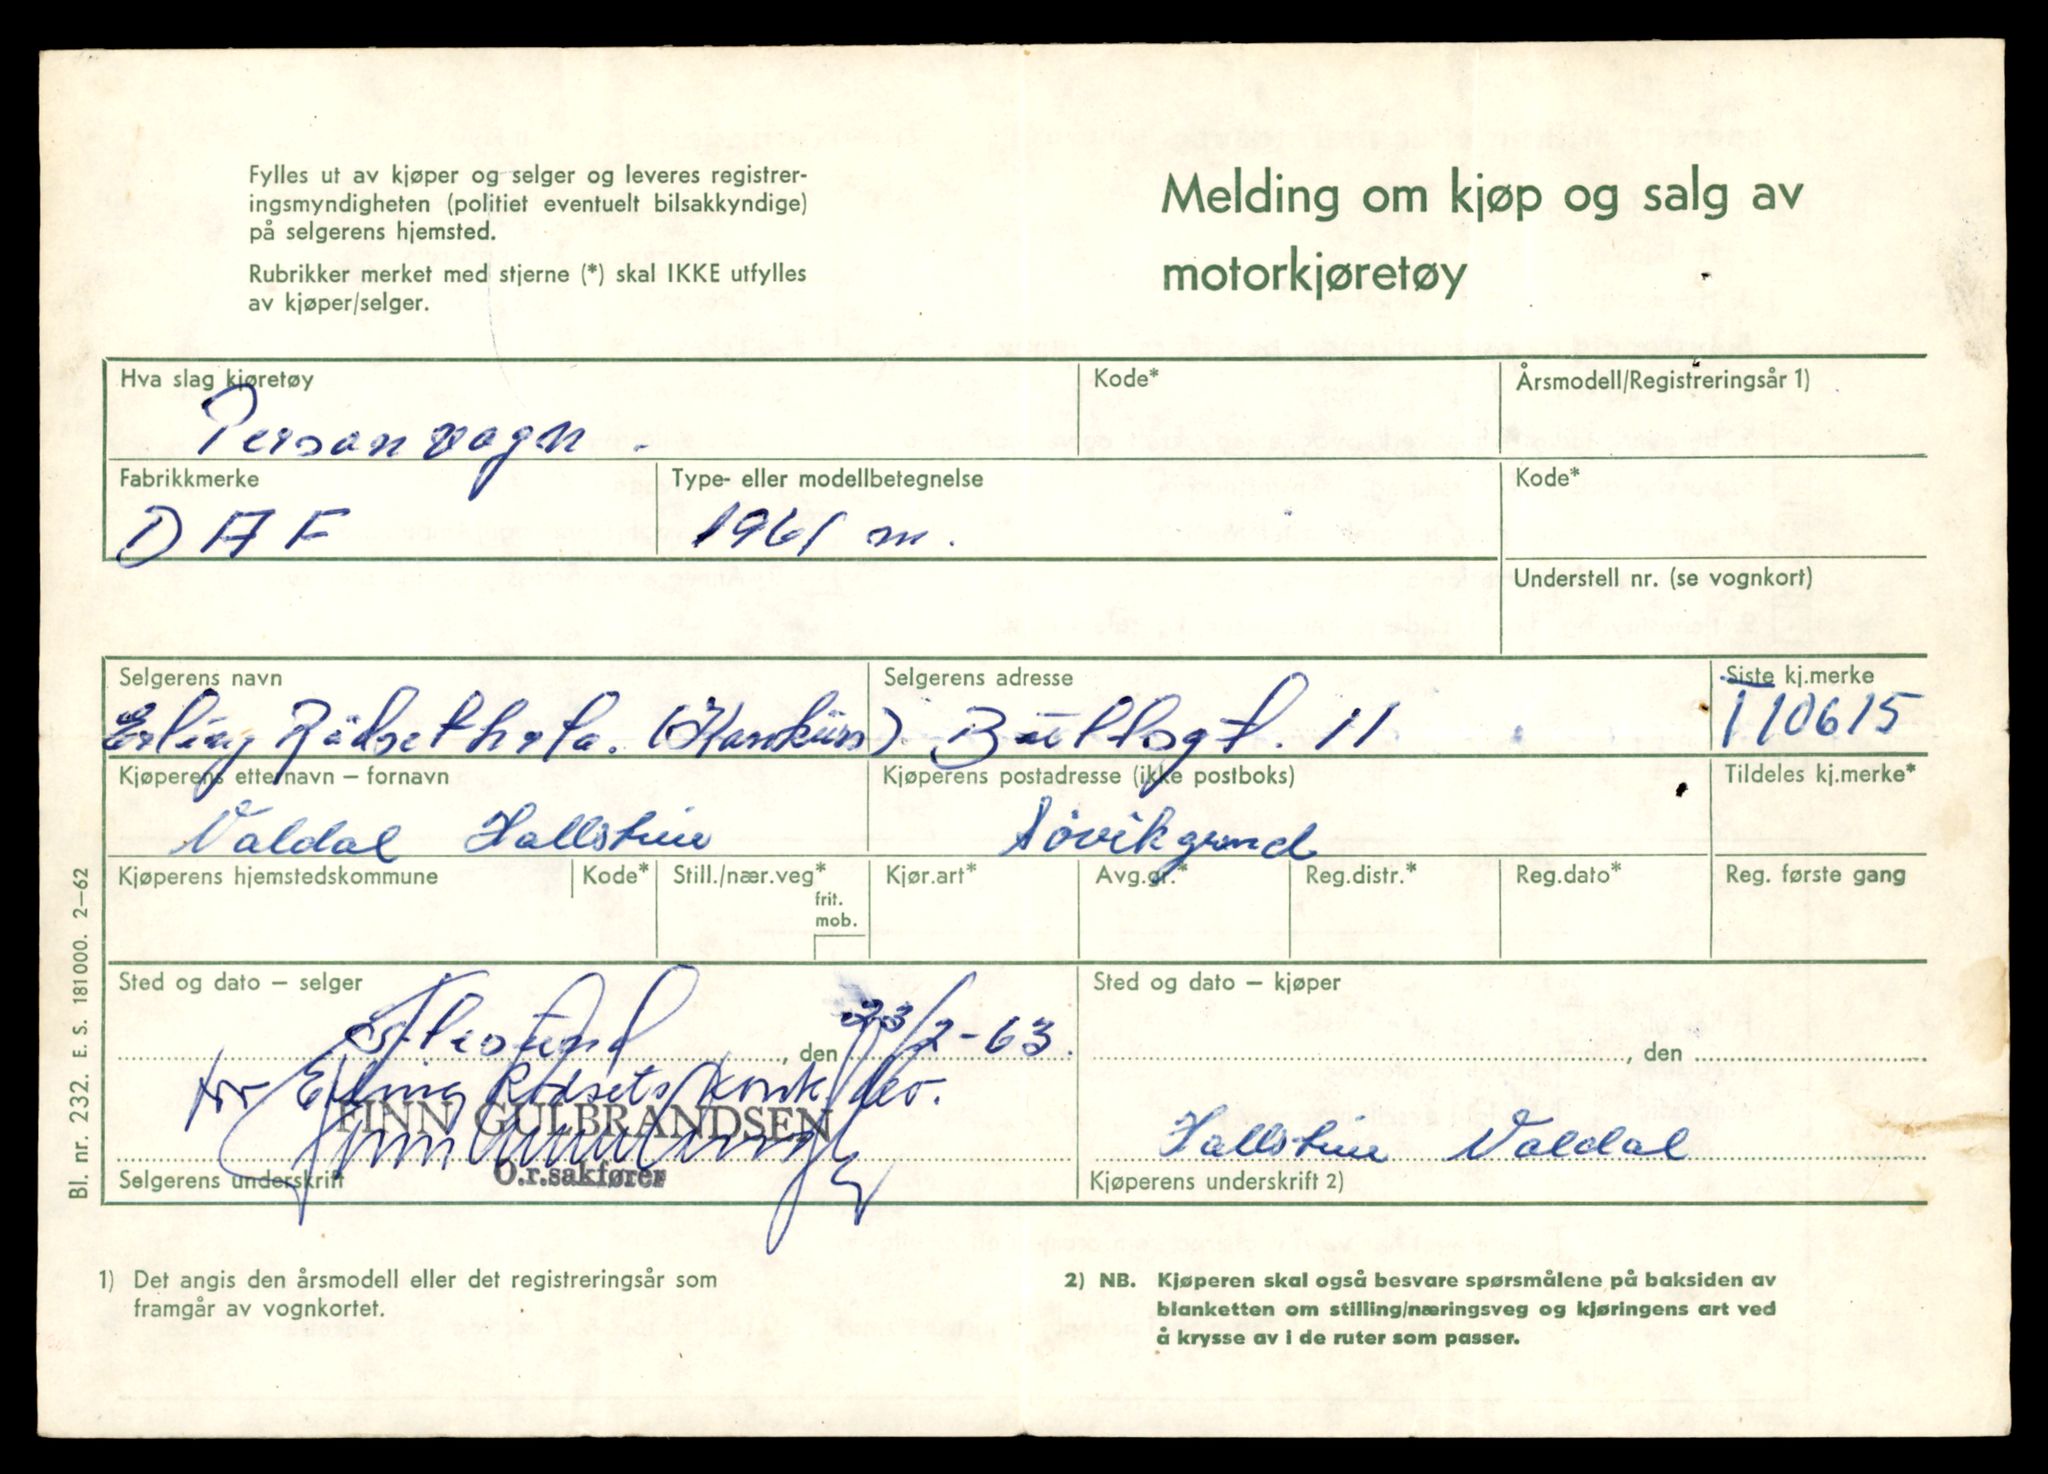 Fylles ut av kjøper og selger og leveres registrer-
ingsmyndigheten (politiet eventuelt bilsakkyndige)
på selgerens hjemsted.
Rubrikker merket med stjerne (*) skal IKKE utfylles
av kjøper/selger.
Melding om kjøp og salg av
motorkjøretøy
Hva slag kjøretøy
Personvogn.
Kode*
Årsmodell/Registreringsår 1)
Fabrikkmerke
DAF
Type- eller modellbetegnelse
1961 m.
Kode*
Understell nr. (se vognkort)
Selgerens navn
Erling
Selgerens adresse
11
Siste kj.merke
T10615
Kjøperens etternavn – fornavn
Valdal Hallstein
Kjøperens postadresse (ikke postboks)
Søvikgrend
Tildeles kj.merke*
Kjøperens hjemstedskommune
Kode*
Still./nær.veg*
frit.
mob.
Kjør.art*
Avg.gr.*
Reg.distr.*
Reg.dato*
Reg. første gang
Sted og dato – selger
Ålesund, den 23/2-63.
for Erling Rødsets konk.bo.
FINN GULBRANDSEN
O.r.sakfører
Selgerens underskrift
Sted og dato – kjøper
, den
Hallstein Valdal
Kjøperens underskrift 2)
1) Det angis den årsmodell eller det registreringsår som
framgår av vognkortet.
2) NB. Kjøperen skal også besvare spørsmålene på baksiden av
blanketten om stilling/næringsveg og kjøringens art ved
å krysse av i de ruter som passer.
Bl. nr. 232. E. S. 181000. 2–62